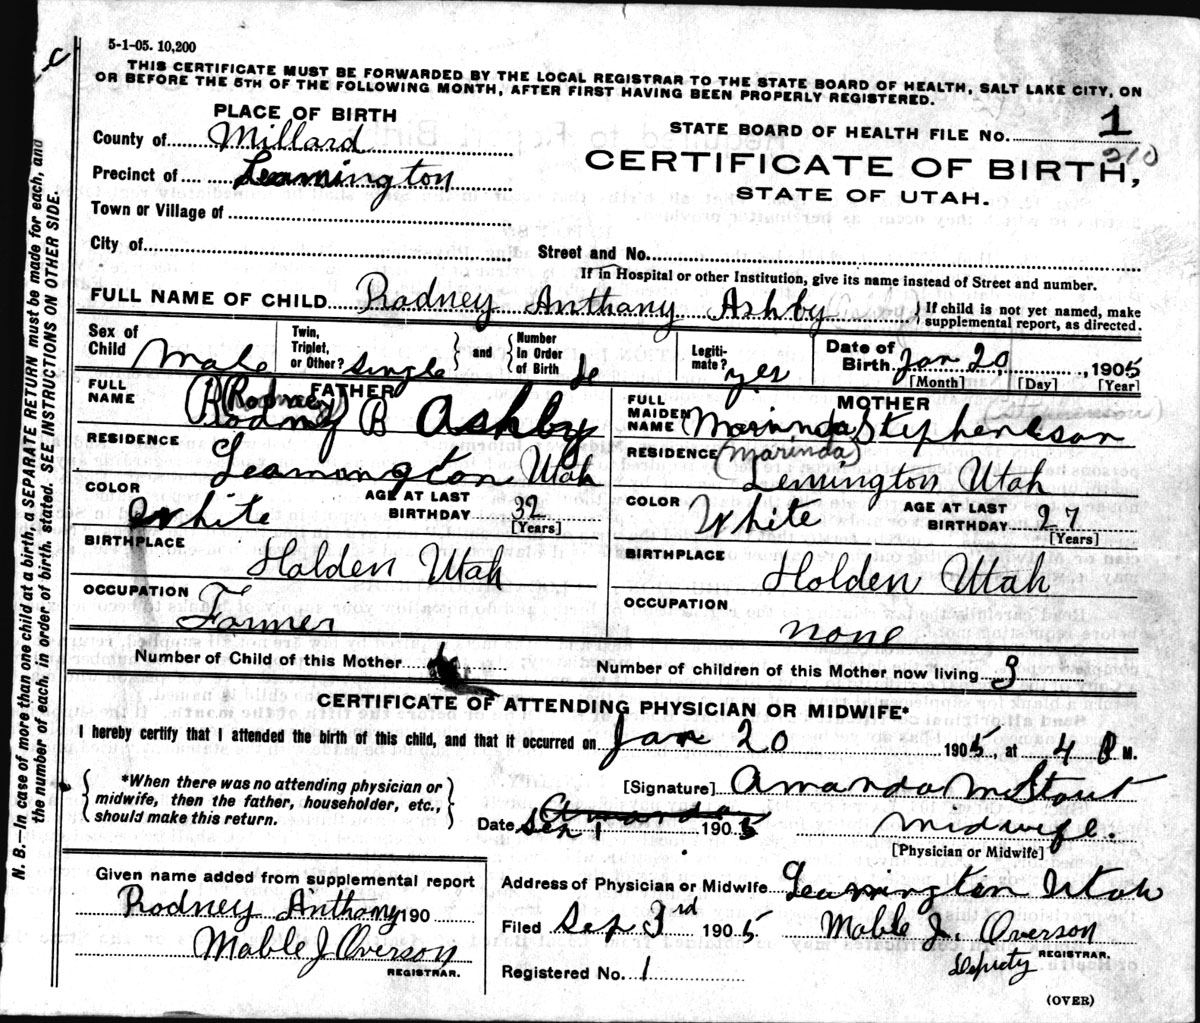 5-1-05. 10,200
THIS CERTIFICATE MUST BE FORWARDED BY THE LOCAL REGISTRAR TO THE STATE BOARD OF HEALTH, SALT LAKE CITY, ON
OR BEFORE THE 5TH OF THE FOLLOWING MONTH, AFTER FIRST HAVING BEEN PROPERLY REGISTERED.
PLACE OF BIRTH
STATE BOARD OF HEALTH FILE NO. 1
210
County of Millard
CERTIFICATE OF BIRTH,
Precinct of Leamington
STATE OF UTAH.
Town or Village of
City of
Street and No.
If in Hospital or other Institution, give its name instead of Street and number.
FULL NAME OF CHILD Rodney Anthany Ashby } If child is not yet named, make supplemental report, as directed.
Sex of Child Male
Twin, Triplet, or Other? Single } and { Number In Order of Birth
Legiti-mate? yes
Date of Birth Jan 20, 1905
[Month] [Day] [Year]
FATHER
FULL NAME (Rodney) Rodney B Ashby
MOTHER
FULL MAIDEN NAME Marinda Stephenson
(Stephenson)
RESIDENCE Leamington Utah
RESIDENCE (Marinda) Lemington Utah
COLOR White
AGE AT LAST BIRTHDAY 32
[Years]
COLOR White
AGE AT LAST BIRTHDAY 27
[Years]
BIRTHPLACE Holden Utah
BIRTHPLACE Holden Utah
OCCUPATION Farmer
OCCUPATION none
Number of Child of this Mother
Number of children of this Mother now living 3
CERTIFICATE OF ATTENDING PHYSICIAN OR MIDWIFE*
I hereby certify that I attended the birth of this child, and that it occurred on Jan 20 1905, at 4 P M.
{ *When there was no attending physician or midwife, then the father, householder, etc., should make this return. }
[Signature] Amanda M Stout
Date Sep 1 1905
Midwife.
[Physician or Midwife]
Given name added from supplemental report
Rodney Anthany 190
Mable J Overson
REGISTRAR.
Address of Physician or Midwife Leamington Utah
Filed Sep 3rd 1905
Mable J. Overson
Deputy REGISTRAR.
Registered No. 1
(OVER)
N. B.—In case of more than one child at a birth, a SEPARATE RETURN must be made for each, and
the number of each, in order of birth, stated. SEE INSTRUCTIONS ON OTHER SIDE.